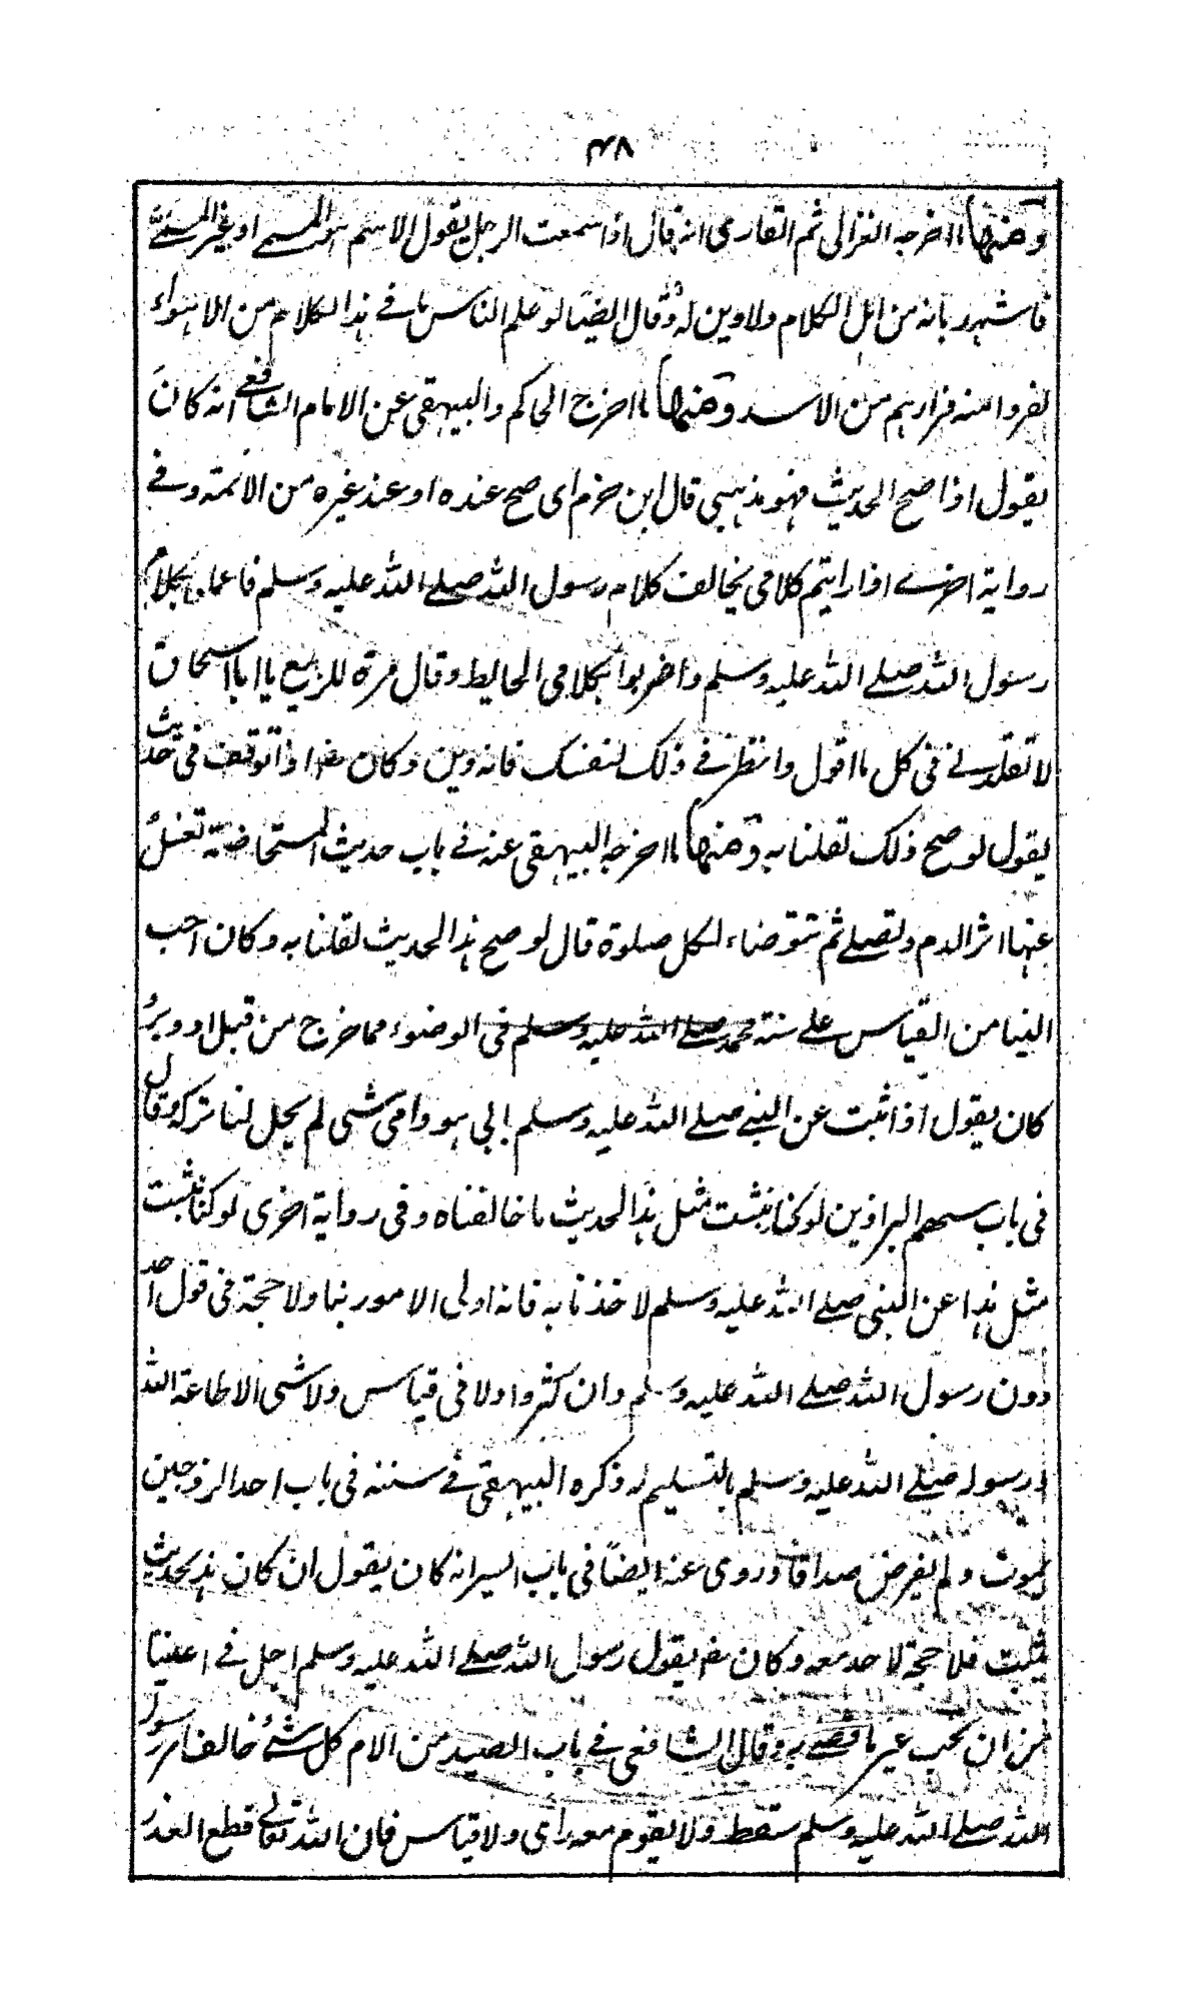 ٤٨
ومنها ما اخرجه الغزالى ثم القارى انه قال اذا سمعت الرجل يقول الاسم هو المسمى او غير المسمى
فاشهد بانه من اهل الكلام ولا دين له وقال ايضا لو علم الناس ما فى هذا الكلام من الاهواء
لفروا منه فرارهم من الاسد ومنها ما اخرج الحاكم والبيهقى عن الامام الشافعى انه كان
يقول اذا صح الحديث فهو مذهبى قال ابن حزم اى صح عنده او عند غيره من الائمة وفى
رواية اخرى اذا رايتم كلامى يخالف كلام رسول الله صلى الله عليه وسلم فاعملوا بكلام
رسول الله صلى الله عليه وسلم واضربوا بكلامى الحايط وقال مرة للربيع يا ابا اسحاق
لا تقلدنى فى كل ما اقول وانظر فى ذلك لنفسك فانه دين وكان رضـ اذا توقف فى حديث
يقول لو صح ذلك لقلنا به ومنها ما اخرجه البيهقى عنه فى باب حديث المستحاضة تغسل
عنها اثر الدم وتصلى ثم تتوضاء لكل صلوة قال لو صح هذا الحديث لقلنا به وكان احب
الينا من القياس على سنة محمد صلى الله عليه وسلم فى الوضوء مما خرج من قبل او دبر
كان يقول اذا ثبت عن النبى صلى الله عليه وسلم بابى هو وامى شى لم يحل لنا تركه وقال
فى باب سهم البراذين لو كنا نثبت مثل هذا الحديث ما خالفناه وفى رواية اخرى لو كنا نثبت
مثل هذا عن النبى صلى الله عليه وسلم لاخذنا به فانه اولى الامور بنا ولا حجة فى قول احد
دون رسول الله صلى الله عليه وسلم وان كثروا ولا فى قياس ولا شى الا طاعة الله
ورسوله صلى الله عليه وسلم بالتسليم له ذكره البيهقى فى سننه فى باب احد الزوجين
يموت ولم يفرض صداقا وروى عنه ايضاً فى باب السير انه كان يقول ان كان هذا الحديث
يثبت فلا حجة لاحد معه وكان رضـ يقول رسول الله صلى الله عليه وسلم اجل فى اعيننا
من ان نحب غير ما قضى به وقال الشافعى فى باب الصيد من الام كل شئ خالف امر رسول
الله صلى الله عليه وسلم سقط ولا يقوم معه راى ولا قياس فان الله تعالى قطع العذر